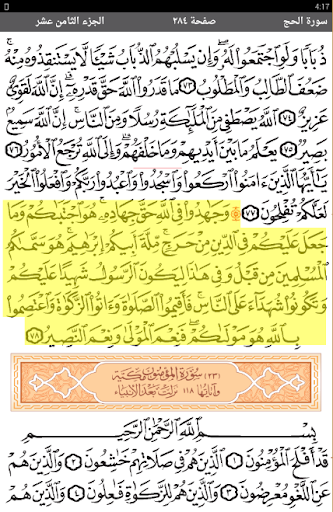 4:17
سورة الحج صفحة ٢٨٤ الجزء الثامن عشر
ذُبَابًا وَلَوِ ٱجْتَمَعُوا۟ لَهُۥ ۖ وَإِن يَسْلُبْهُمُ ٱلذُّبَابُ شَيْـًٔا لَّا يَسْتَنقِذُوهُ مِنْهُ ۚ
ضَعُفَ ٱلطَّالِبُ وَٱلْمَطْلُوبُ ٧٣ مَا قَدَرُوا۟ ٱللَّهَ حَقَّ قَدْرِهِۦٓ ۗ إِنَّ ٱللَّهَ لَقَوِىٌّ
عَزِيزٌ ٧٤ ٱللَّهُ يَصْطَفِى مِنَ ٱلْمَلَـٰٓئِكَةِ رُسُلًا وَمِنَ ٱلنَّاسِ ۚ إِنَّ ٱللَّهَ سَمِيعٌۢ
بَصِيرٌ ٧٥ يَعْلَمُ مَا بَيْنَ أَيْدِيهِمْ وَمَا خَلْفَهُمْ ۗ وَإِلَى ٱللَّهِ تُرْجَعُ ٱلْأُمُورُ ٧٦
يَـٰٓأَيُّهَا ٱلَّذِينَ ءَامَنُوا۟ ٱرْكَعُوا۟ وَٱسْجُدُوا۟ وَٱعْبُدُوا۟ رَبَّكُمْ وَٱفْعَلُوا۟ ٱلْخَيْرَ
لَعَلَّكُمْ تُفْلِحُونَ ۩ ٧٧ وَجَـٰهِدُوا۟ فِى ٱللَّهِ حَقَّ جِهَادِهِۦ ۚ هُوَ ٱجْتَبَىٰكُمْ وَمَا
جَعَلَ عَلَيْكُمْ فِى ٱلدِّينِ مِنْ حَرَجٍ ۚ مِّلَّةَ أَبِيكُمْ إِبْرَٰهِيمَ ۚ هُوَ سَمَّىٰكُمُ
ٱلْمُسْلِمِينَ مِن قَبْلُ وَفِى هَـٰذَا لِيَكُونَ ٱلرَّسُولُ شَهِيدًا عَلَيْكُمْ
وَتَكُونُوا۟ شُهَدَآءَ عَلَى ٱلنَّاسِ ۚ فَأَقِيمُوا۟ ٱلصَّلَوٰةَ وَءَاتُوا۟ ٱلزَّكَوٰةَ وَٱعْتَصِمُوا۟
بِٱللَّهِ هُوَ مَوْلَىٰكُمْ ۖ فَنِعْمَ ٱلْمَوْلَىٰ وَنِعْمَ ٱلنَّصِيرُ ٧٨
(٢٣) سورة المؤمنون مكية
وآياتها ١١٨ نزلت بعد الأنبياء
بِسْمِ ٱللَّهِ ٱلرَّحْمَـٰنِ ٱلرَّحِيمِ
قَدْ أَفْلَحَ ٱلْمُؤْمِنُونَ ١ ٱلَّذِينَ هُمْ فِى صَلَاتِهِمْ خَـٰشِعُونَ ٢ وَٱلَّذِينَ هُمْ
عَنِ ٱللَّغْوِ مُعْرِضُونَ ٣ وَٱلَّذِينَ هُمْ لِلزَّكَوٰةِ فَـٰعِلُونَ ٤ وَٱلَّذِينَ هُمْ